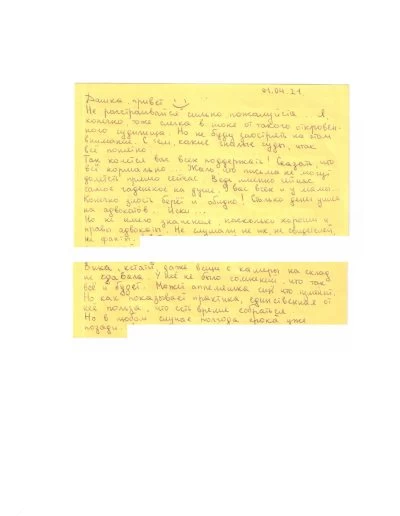 01.04.21
Дашка, привет
Не расстраивайся сильно пожалуйста. Я,
конечно, тоже слегка в шоке от такого откровен-
ного судилища. Но не буду заострять на этом
внимание. С тем, какие у нас суды, итак
всё понятно.
Так хочется вас всех поддержать! Сказать, что
всё нормально. Жаль, что письма не могут
долететь прямо сейчас. Ведь именно сейчас
самое гадкое на душе. У вас всех и у мамы...
Конечно злость берёт и обидно! Сколько денег ушло
на адвокатов. Иски...
Но не имело значения насколько хороши и
правы адвокаты. Не слушали ни их, ни свидетелей,
ни факты.
Вика, кстати, даже вещи с камеры на склад
не сдавала. У неё не было сомнений, что так
всё и будет. Может аппеляшка что изменит.
Но как показывает практика, единственная от
неё польза, что есть время собраться.
Но в любом случае полгода срока уже
позади.